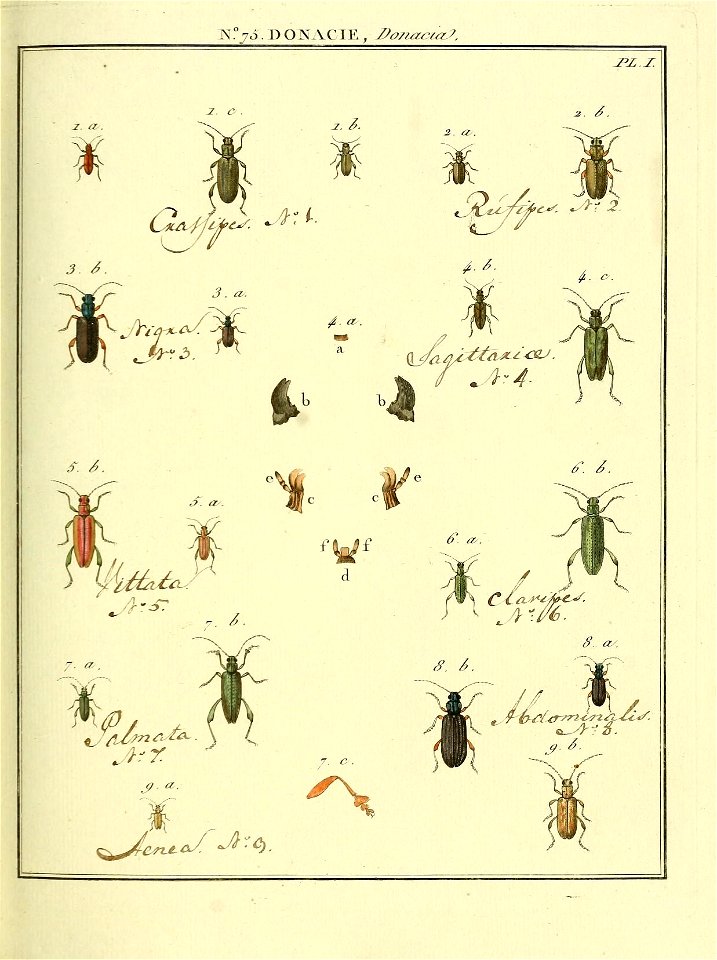 N.º 75. DONACIE, Donacia.
PL. I.
1. a.
1. c.
1. b.
2. a.
2. b.
Crassipes. Nº 1.
Rufipes. Nº 2
3. b.
3. a.
4. a.
4. b.
4. c.
Nigra.
Nº 3.
a
Sagittariæ.
Nº 4.
b
b
5. b.
5. a.
e
c
c
e
6. a.
6. b.
f
f
d
Vittata
Nº 5.
Claripes.
Nº 6.
7. a.
7. b.
8. b.
8. a.
Palmata.
Nº 7.
Abdominalis.
Nº 8.
9. a.
7. c.
9. b.
Aenea. Nº 9.